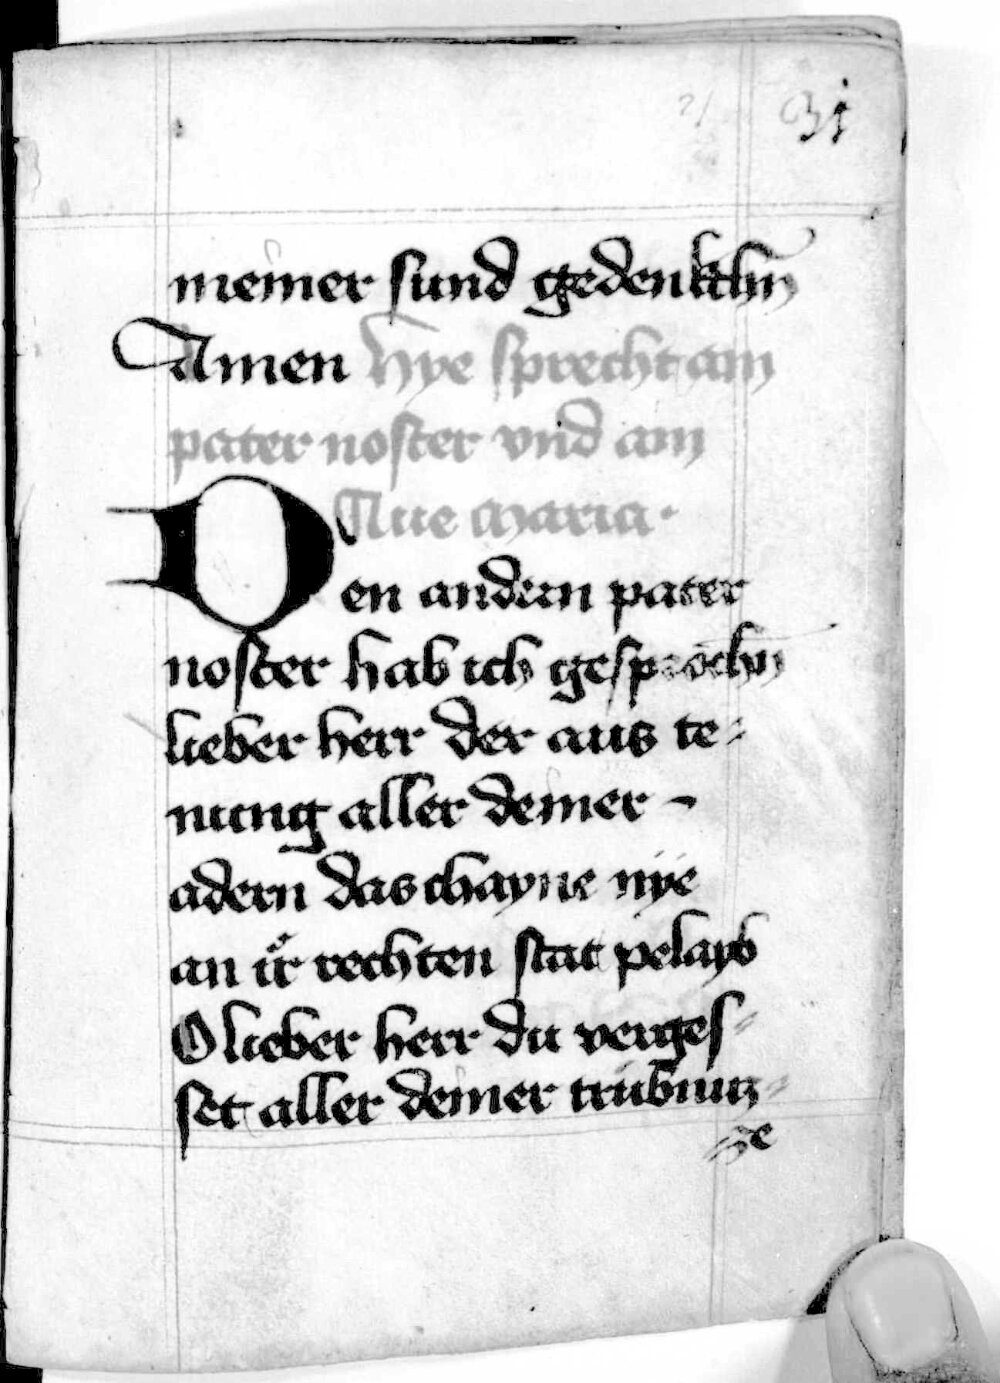 31
meiner sund gedenkthn
Amen Hye sprecht ain
pater noster vnd ain
Aue maria.
Den andern pater
noster hab ich gesprochn
lieber herr der aus te⸗
nung aller deiner
adern das chayne nye
an ir rechten stat pelayb
O lieber herr du verges⸗
set aller deiner trübnüz⸗
ze